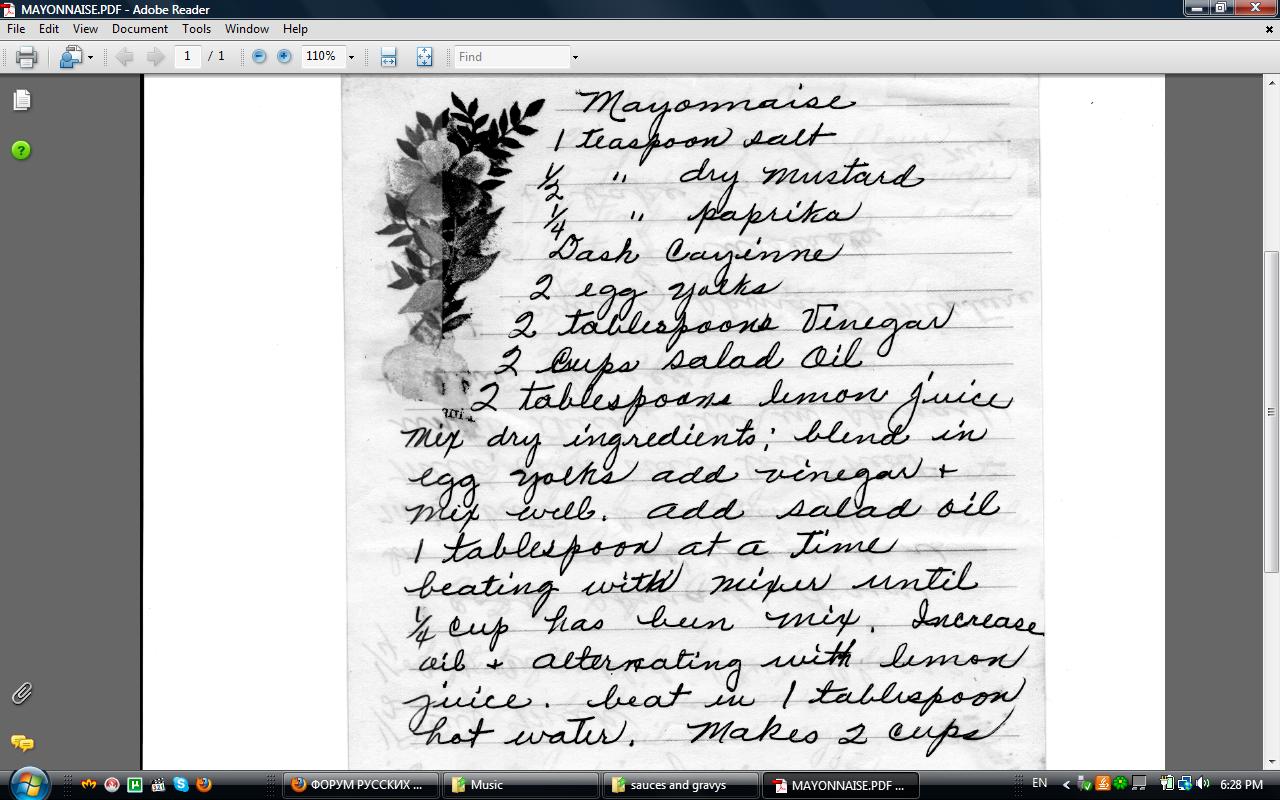 MAYONNAISE.PDF - Adobe Reader
File Edit View Document Tools Window Help
1 / 1 110% Find
Mayonnaise
1 teaspoon salt
1/2 " dry mustard
1/4 " paprika
Dash Cayinne
2 egg yolks
2 tablespoons Vinegar
2 Cups salad Oil
2 tablespoons lemon juice
Mix dry ingredients; blend in
egg yolks add vinegar +
mix well. add salad oil
1 tablespoon at a Time
beating with mixer until
1/4 cup has been mix. Increase
oil + alternating with lemon
juice. beat in 1 tablespoon
hot water. Makes 2 cups
ФОРУМ РУССКИХ ... Music sauces and gravys MAYONNAISE.PDF ... EN 6:28 PM